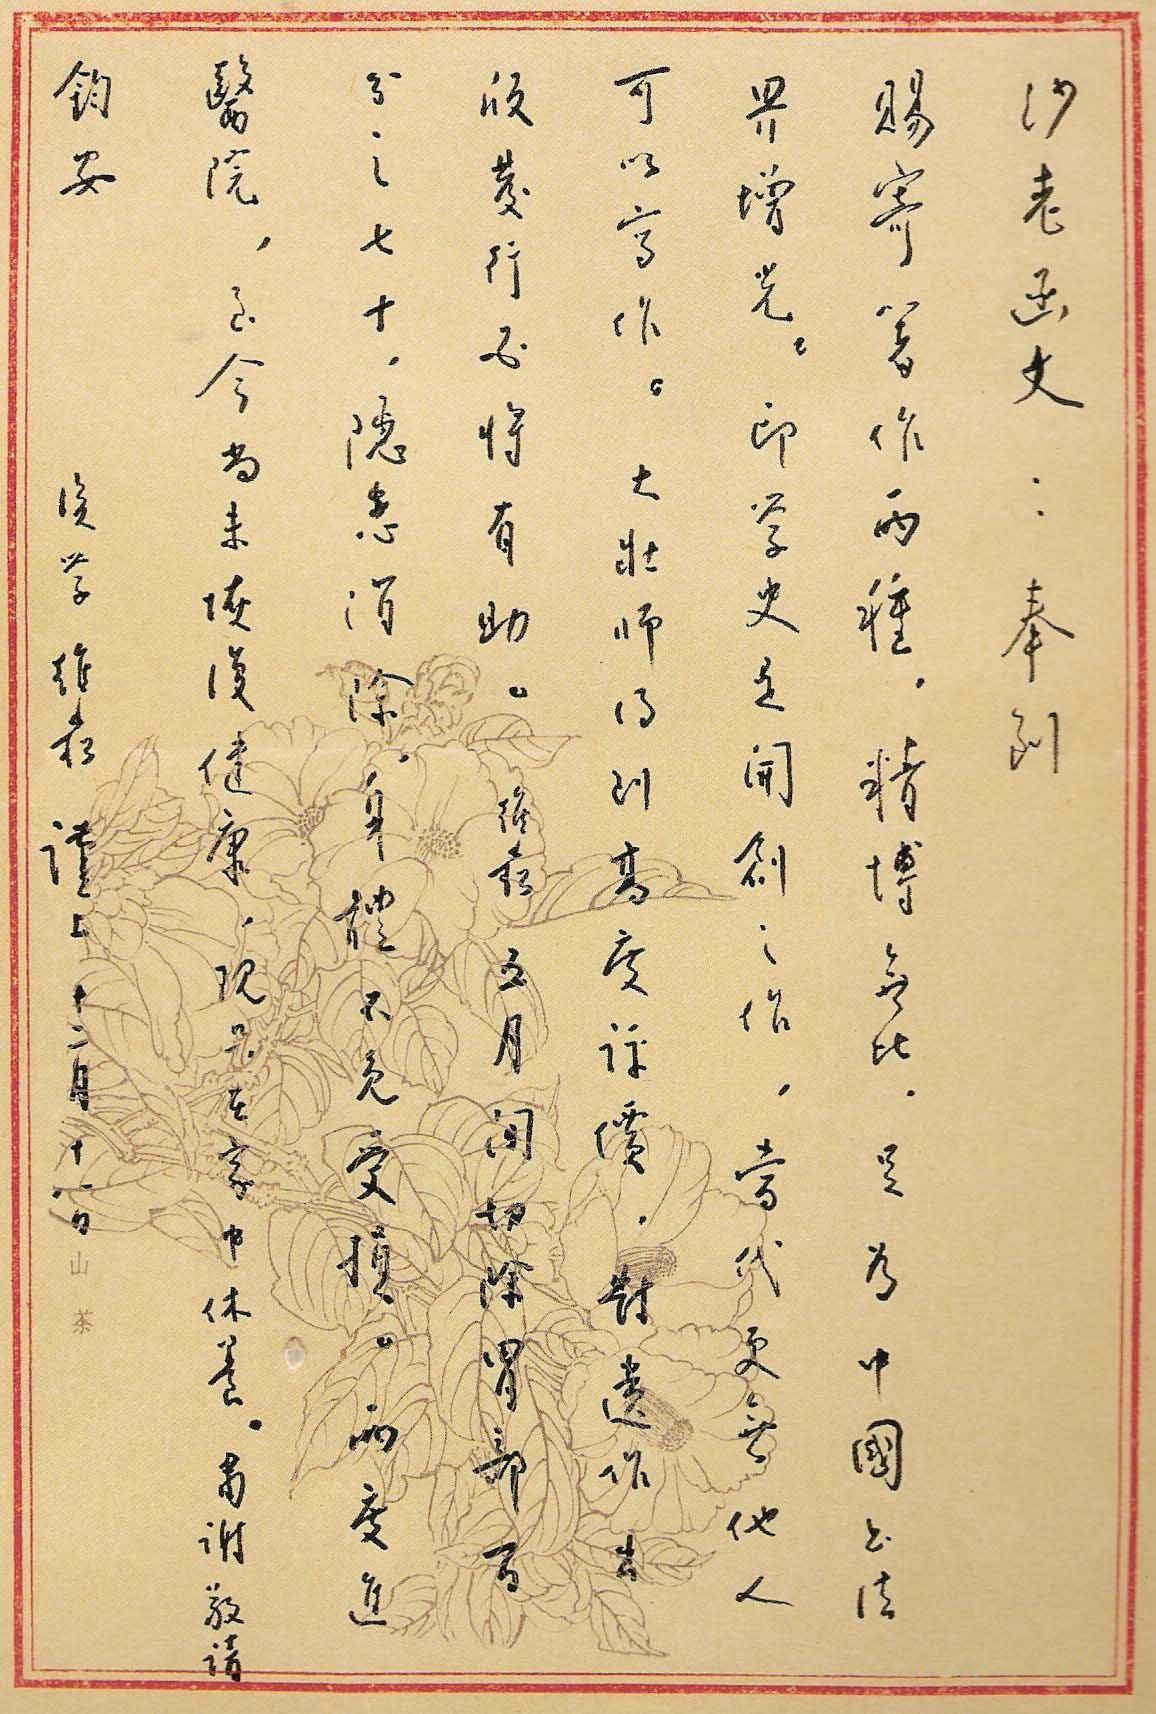 沙老函丈：奉到
賜寄著作两種，精博無比，足为中國书法
界增光。印学史是開創之作，當代更無他人
可以寫作。大壯師得到高度评價，對遗作出
版發行必将有助。維崧五月间切除胃部百
分之七十，隐患消除，身體不免受損。两度進
醫院，至今尚未恢復健康，现是在家中休養。肃谢敬请
鈞安
後学維崧謹上 十二月十八日
山茶